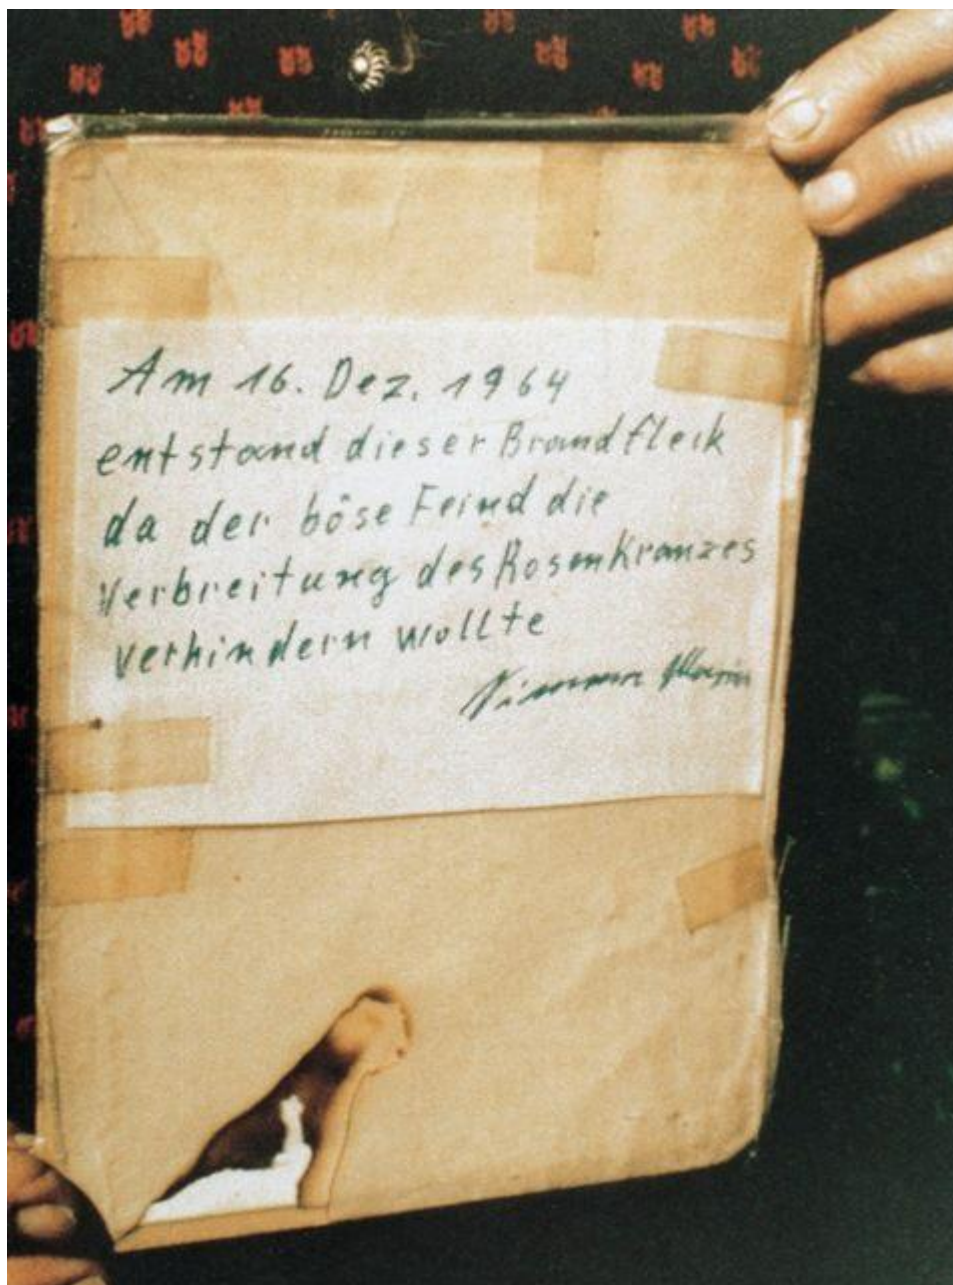 Am 16. Dez. 1964
entstand dieser Brandfleck
da der böse Feind die
Verbreitung des Rosenkranzes
verhindern wollte